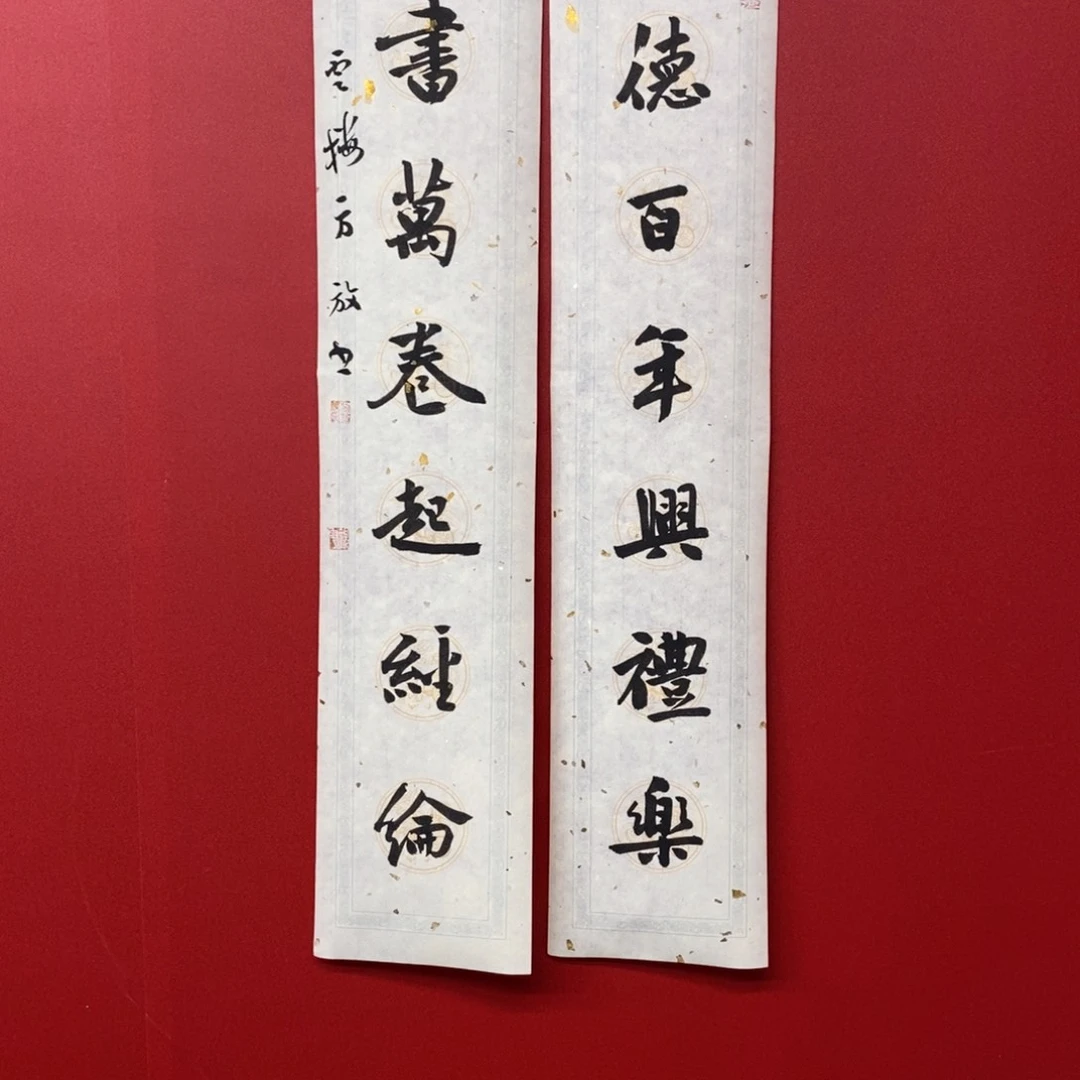 德百年興禮樂
書萬卷起經綸
雲梅方放書